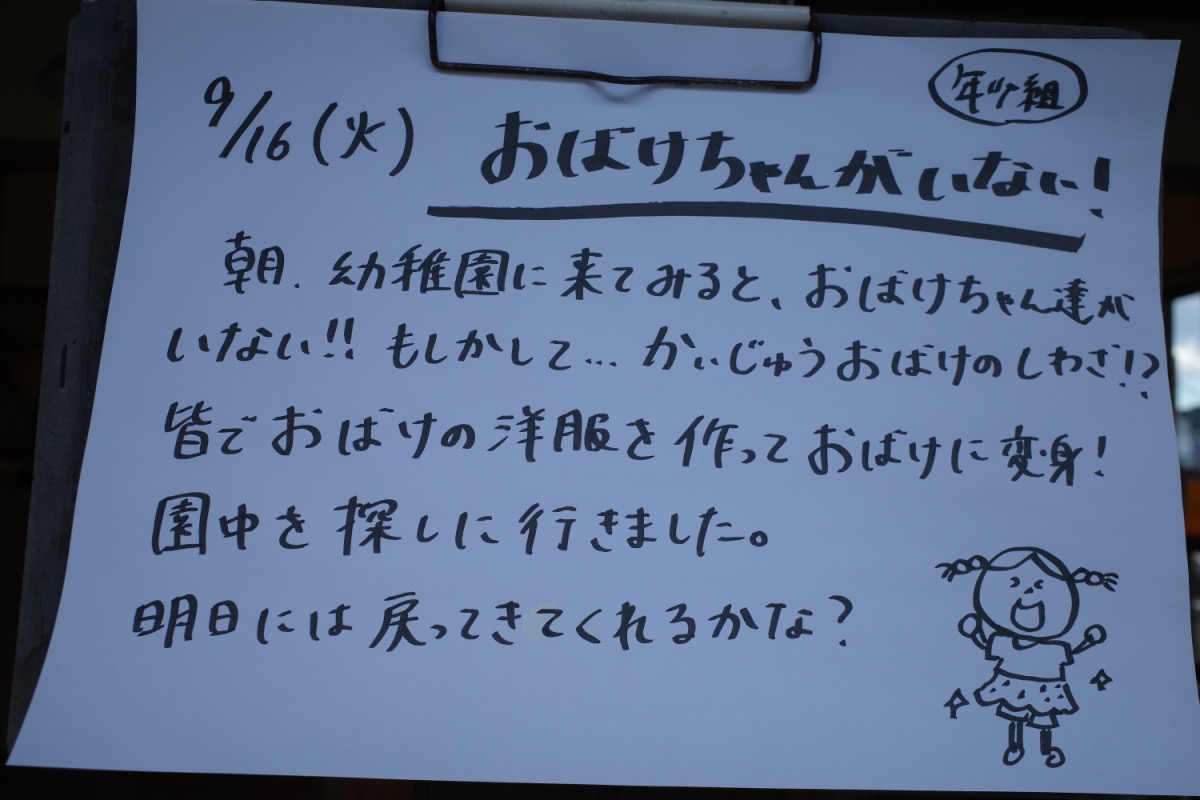 年少組
9/16(火) おばけちゃんがいない!
朝、幼稚園に来てみると、おばけちゃん達が
いない!! もしかして… かいじゅうおばけのしわざ!?
皆でおばけの洋服を作っておばけに変身!
園中を探しに行きました。
明日には戻ってきてくれるかな?